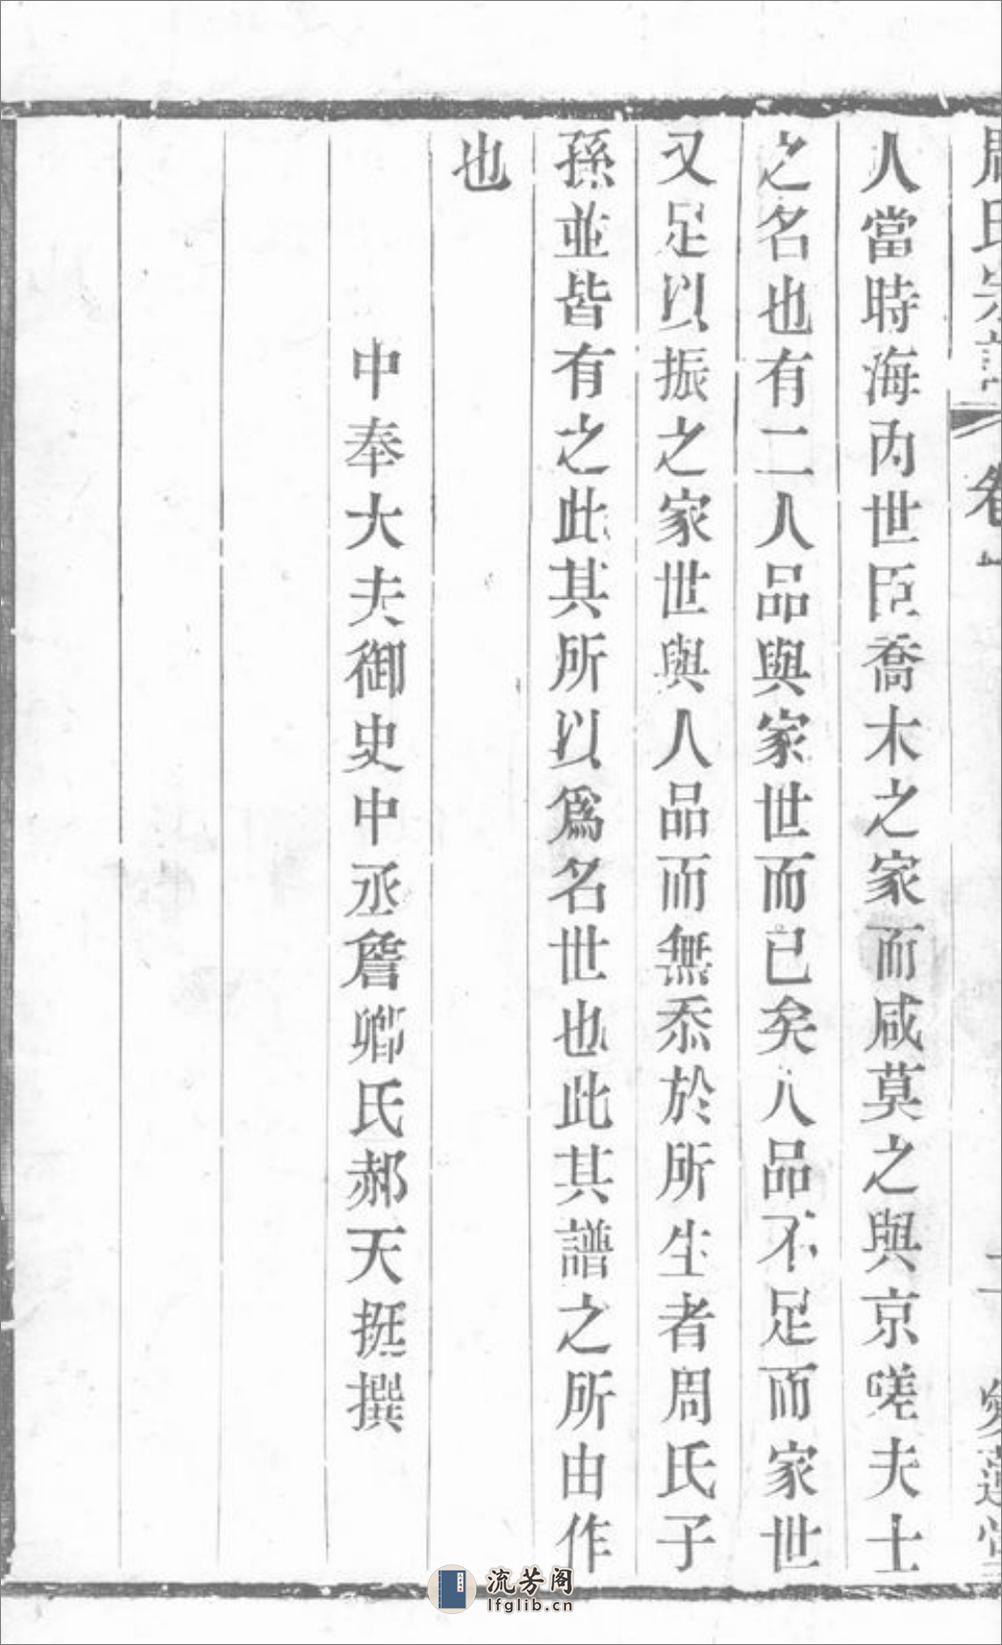 周氏宗譜 卷一 二 愛蓮堂
人當時海內世臣喬木之家而咸莫之與京嗟夫士
之名也有二人品與家世而已矣人品不足而家世
又足以振之家世與人品而無忝於所生者周氏子
孫並皆有之此其所以爲名世也此其譜之所由作
也
中奉大夫御史中丞詹卿氏郝天挺撰
流芳阁
lfglib.cn